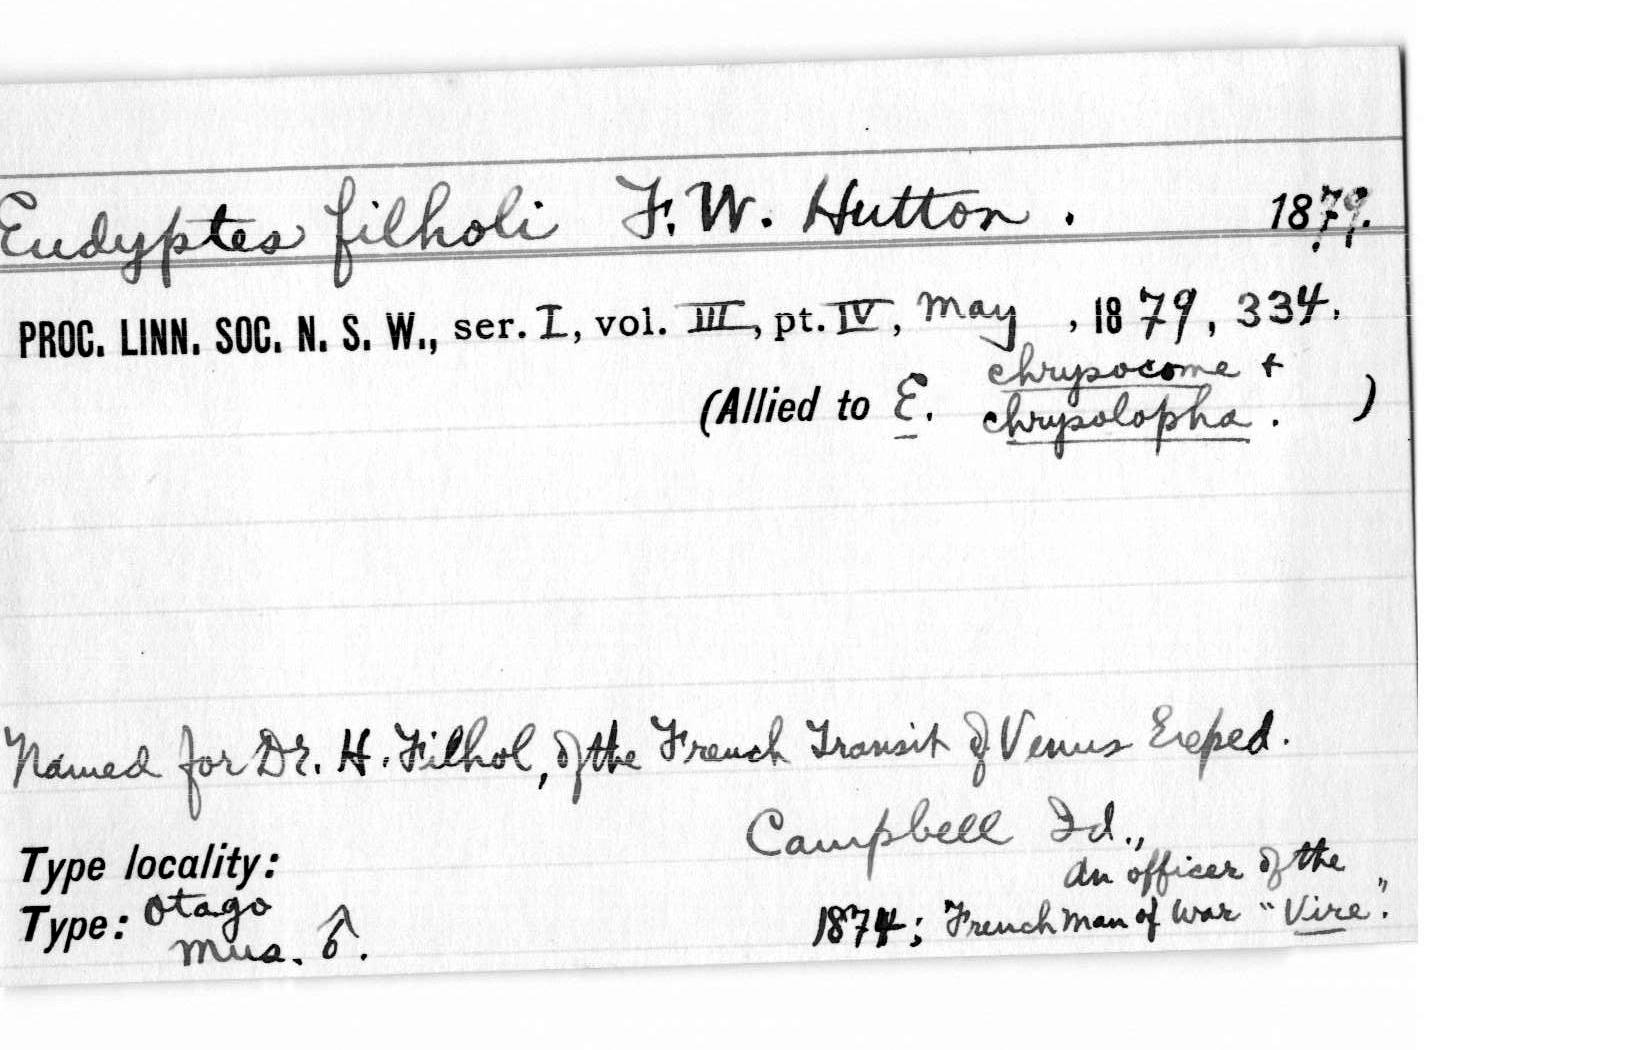 Eudyptes filholi F. W. Hutton. 1879.
PROC. LINN. SOC. N. S. W., ser. I, vol. III, pt. IV, May, 1879, 334.
(Allied to E. chrysocome +
chrysolopha. )
Named for Dr. H. Filhol, of the French Transit of Venus Exped.
Type locality: Campbell Id.,
an officer of the
Type: Otago 1874; French Man of War "Vire".
Mus. ♂.